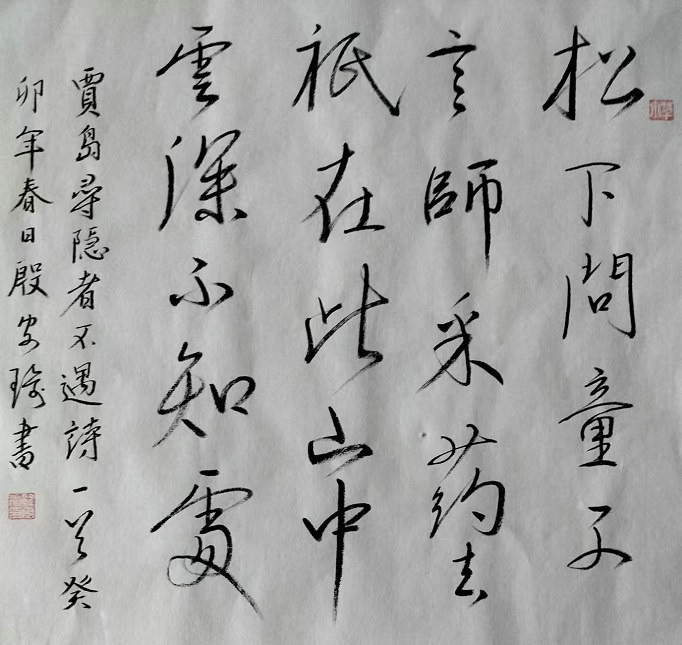 松下問童子
言師采药去
祇在此山中
雲深不知處
賈島尋隱者不遇詩一首癸
卯年春日殷安琦書